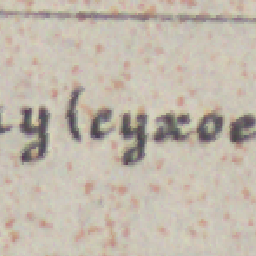 у(сухое